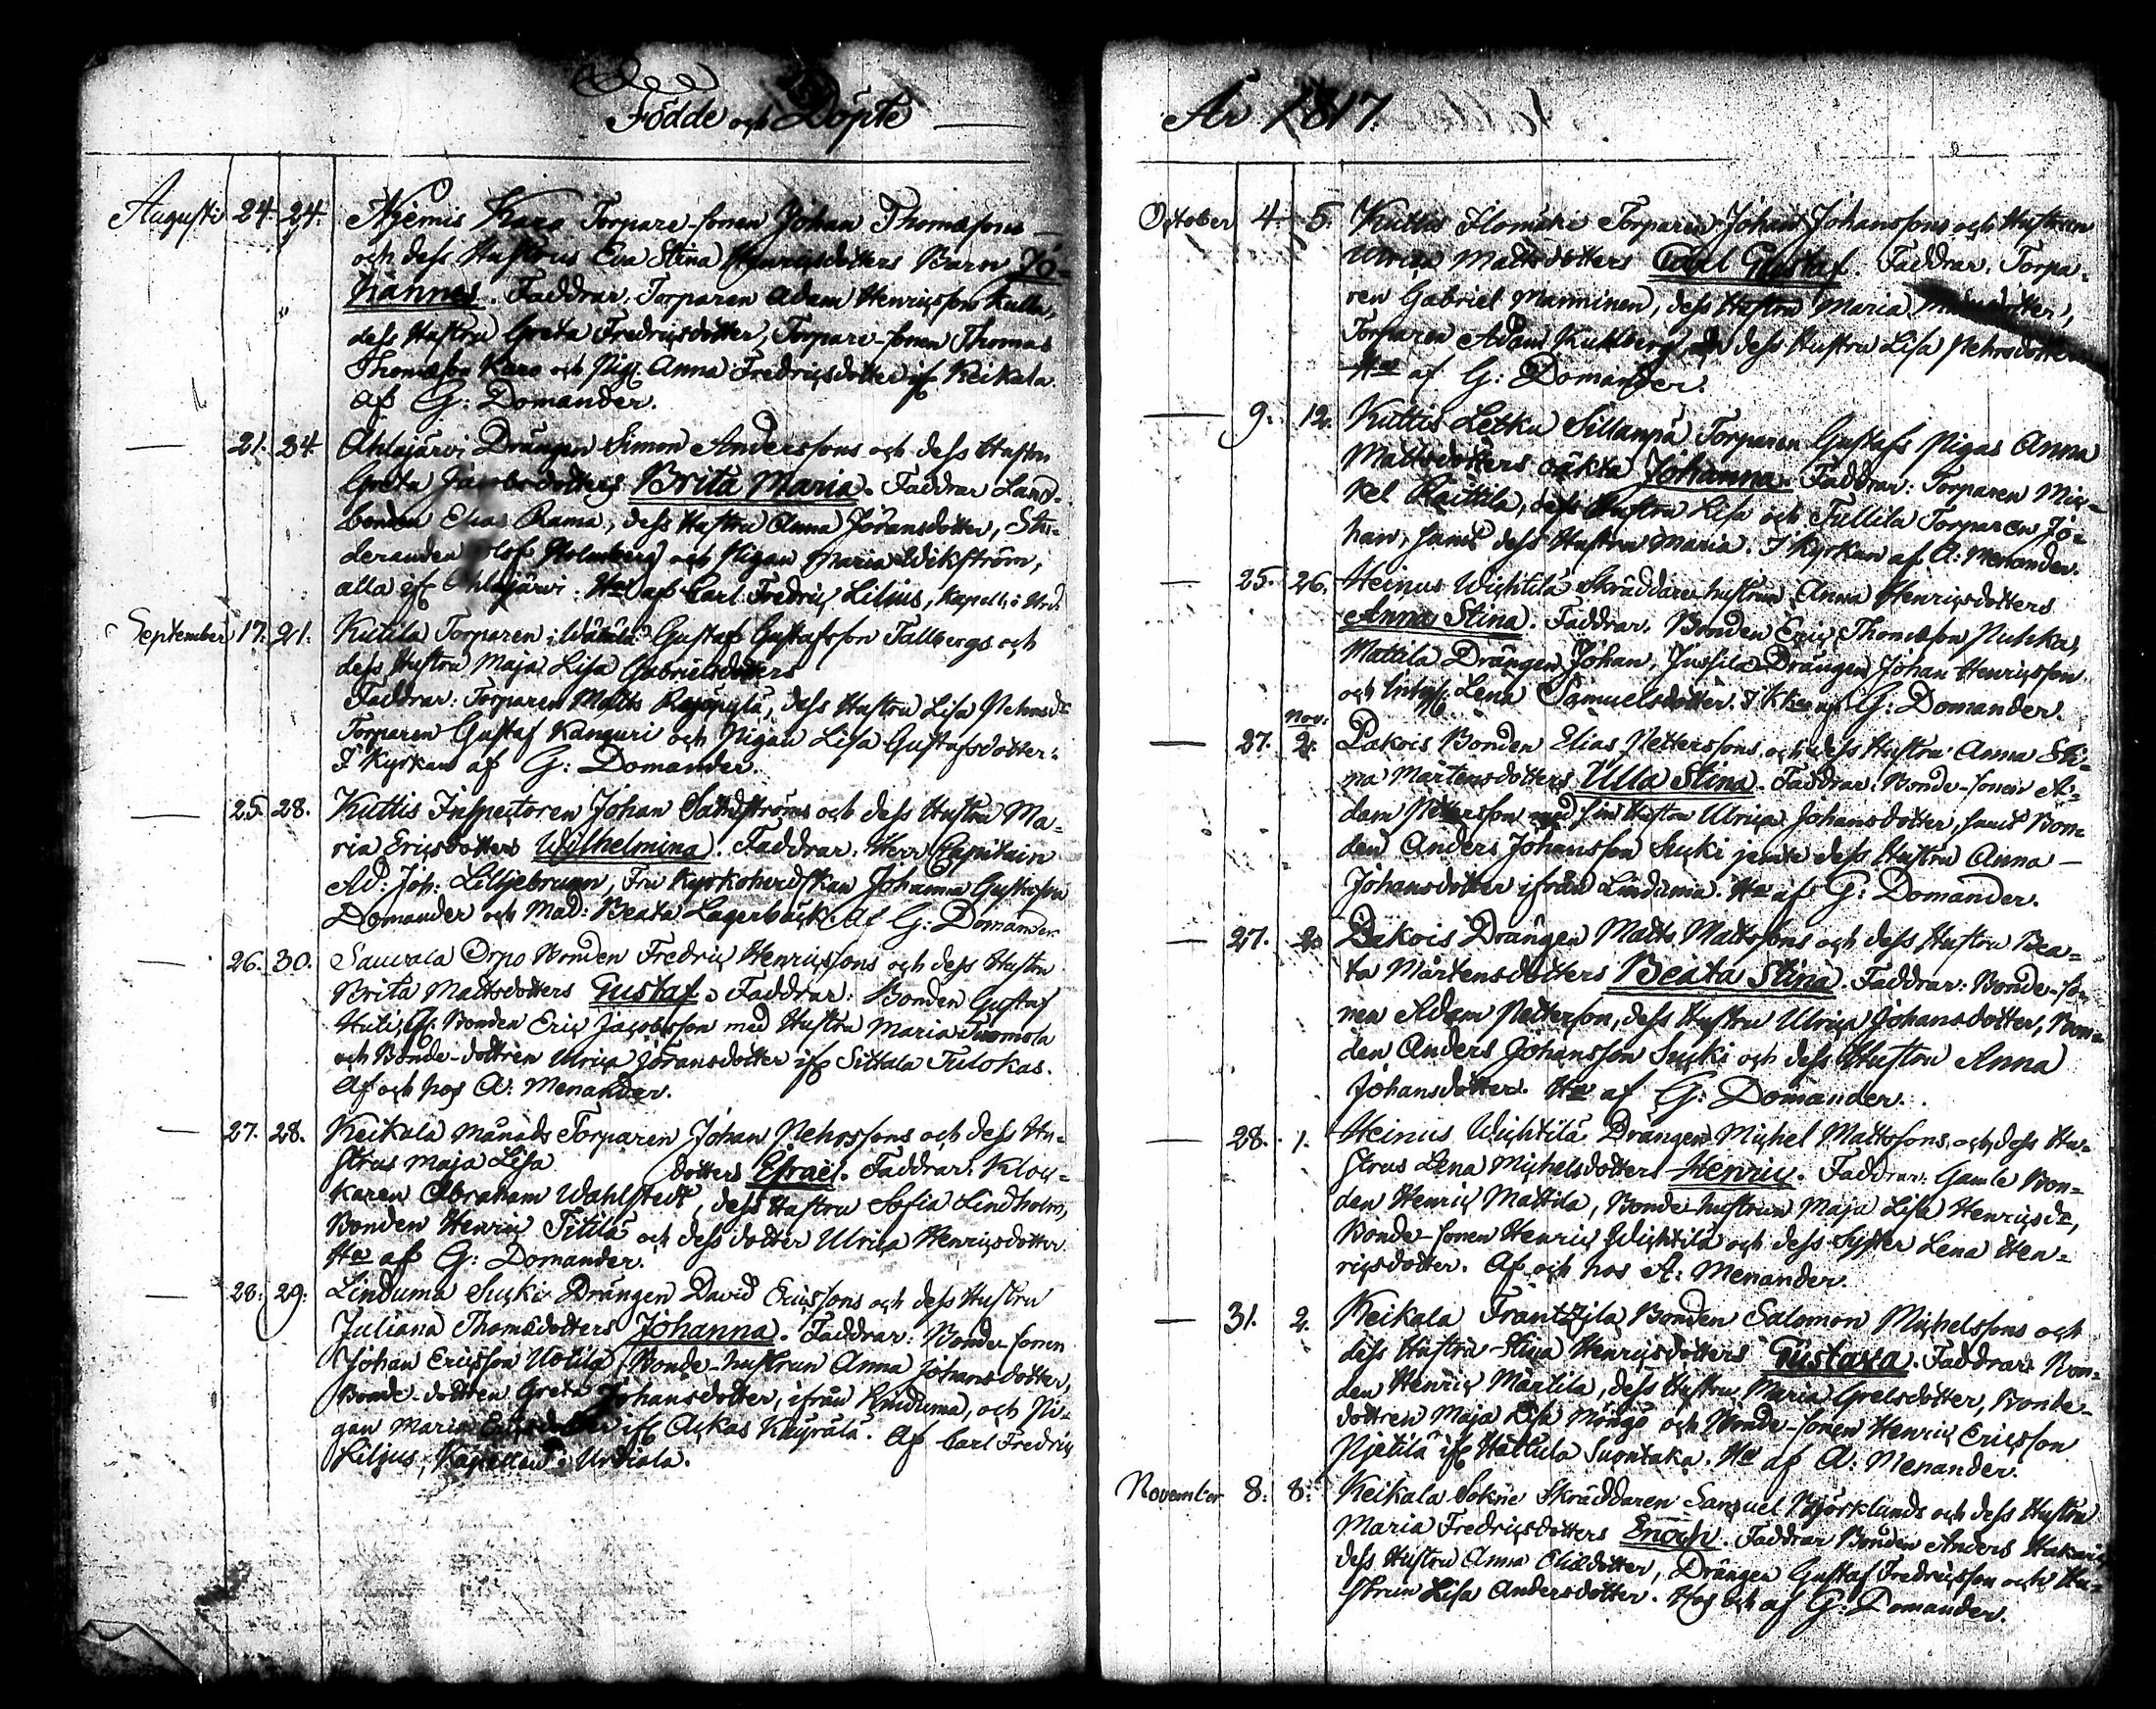 Födde och Döpte
Augusti 24. 24. Njemis Karo Torpare-sonen Johan Thomæsons
och dess Hustrus Eva Stina Henricsdotters Barn Jo-
hannes. Faddrar. Torparen Adam Henricsson Kulla,
dess Hustru Greta Fredricsdotter, Torpare-sonen Thomas
Thomæson Karo och Pig. Anna Fredricsdotter if Keikala
af G: Domander.
— 21. 24 Ahlajärvi Drängen Simon Anderssons och dess Hustru
Greta Jacobsdotters Brita Maria. Faddrar Land-
bonden Elias Rama, dess Hustru Anna Göransdotter, Stu-
deranden Olof Holmberg och Pigan Maria Wikström,
alla if Ahlajärvi. af Carl Fredric Lilius, Kapell: i Urd.
September 17. 21. Kutila Torparen i Gustaf Gustafsson Tallbergs och
dess Hustru Maja Lisa Gabrielsdotters
Faddrar: Torparen Matts dess Hustru Lisa Pehrsdr
Torparen Gustaf Kanguri och Pigan Lisa Gustafsdotter.
I Kyrkan af G: Domander.
— 25. 28. Kuttis Inspectoren Johan Sandströms och dess Hustru Ma-
ria Ericsdotters Wilhelmina. Faddrar. Herr Capitain
Ad: Joh: Liljebrunn, Fru Kyrkoherdskan Johanna Gustafva
Domander och Mad: Beata Lagerbäck Af G: Domander
— 26. 30. Sauvala Orpo Bonden Fredric Henricssons och dess Hustru
Brita Mattsdotters Gustaf. Faddrar: Bonden Gustaf
Huti, Bonden Eric Jacobsson med Hustru Maria Tuomola
och Bonde-dottren Ulrica Göransdotter if Sittala Tulokas.
Af och hos A: Menander.
— 27. 28. Keikala Månads Torparen Johan Pehrssons och dess Hu-
strus Maja Lisa dotters Efrael. Faddrar. Kloc-
karen Abraham Wahlstedt, dess Hustru Sofia Lindholm,
Bonden Henric Titila och dess dotter Ulrica Henricsdotter
Hos af G: Domander.
— 28. 29. Linduma Sucki Drängen David Ericssons och dess Hustru
Juliana Thomædotters Johanna. Faddrar: Bonde-sonen
Johan Ericsson Uotila, Bonde-hustrun Anna Johansdotter,
Bonde-dottren Greta Johansdotter, ifrån Linduma, och Pi-
gan Maria Ericsdotter if Ackas Kuyrälä. Af Carl Fredric
Lilius, Kapellan i Urdiala.
År 1817
October 4. 5. Kuttis Ilomäki Torparen Johan Johanssons och Hustrun
Ulrica Mattsdotters Carl Gustaf. Faddrar. Torpa-
ren Gabriel Manninen, dess Hustru Maria
Torparen Adam Kuhlberg och dess Hustru Lisa Pehrsdotter
Hos af G: Domander.
— 9. 12. Kuttis Letku Sillanpä Torparen Gustafs Pigas Anna
Mattsdotters oäkta Johanna. Faddrar: Torparen Mic-
kel Raittila, dess Hustru Lisa och Tullila Torparen Jo-
han, samt dess Hustru Maria. I Kyrkan af A: Menander.
— 25. 26. Heinus Wichtilä Skräddare hustrun Anna Henricsdotters
Anna Stina. Faddrar. Bonden Eric Thomæson Puhka,
Mattila Drängen Johan, Jussila Drängen Johan Henricsson
och Lena Samuelsdotter. I af G: Domander.
— 27. Nov. 2. Pakois Bonden Elias Petterssons och dess Hustru Anna Sti-
na Mårtensdotters Ulla Stina. Faddrar: Bonde-sonen A-
dam Pettersson med sin Hustru Ulrica Johansdotter, samt Bon-
den Anders Johansson Sucki jemte dess Hustru Anna —
Johansdotter ifrån Linduma. Hos af G: Domander.
— 27. 2. Pakois Drängen Matts Mattssons och dess Hustru Bea-
ta Mårtensdotters Beata Stina. Faddrar: Bonde-so-
nen Adam Petterson, dess Hustru Ulrica Johansdotter, Bon-
den Anders Johansson Sucki och dess Hustru Anna
Johansdotter. Hos af G: Domander.
— 28. 1. Heinus Wichtilä Drängen Michel Mattssons och dess Hu-
strus Lena Michelsdotters Henric. Faddrar: Gamle Bon-
den Henric Mattila, Bonde-hustrun Maja Lisa Henricsdr,
Bonde-sonen Henric Wichtilä och dess Syster Lena Hen-
ricsdotter. Af och hos A: Menander.
— 31. 2. Keikala Frantzila Bonden Salomon Michelssons och
dess Hustru Stina Henricsdotters Gustava. Faddrar: Bon-
den Henric Märtila, dess Hustru Maria Grelsdotter, Bonde-
dottren Maja Lisa Möngö och Bonde-sonen Henric Ericsson
Pjetilä if Hattula Suontaka. Hos af A: Menander.
November 8. 8. Keikala Sokne Skräddaren Samuel Björklunds och dess Hustru
Maria Fredricsdotters Enoch. Faddrar Bonden Anders Hakari
dess Hustru Anna Eliædotter, Drängen Gustaf Fredricsson och Hu-
strun Lisa Andersdotter. Hos och af G: Domander.